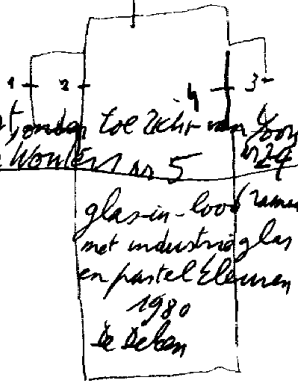 1 2 4 3
t, onder toezicht van
Wouters nr 5 nr 24
glas-in-lood ramen
met industrieglas
en pastel kleuren
1980
de